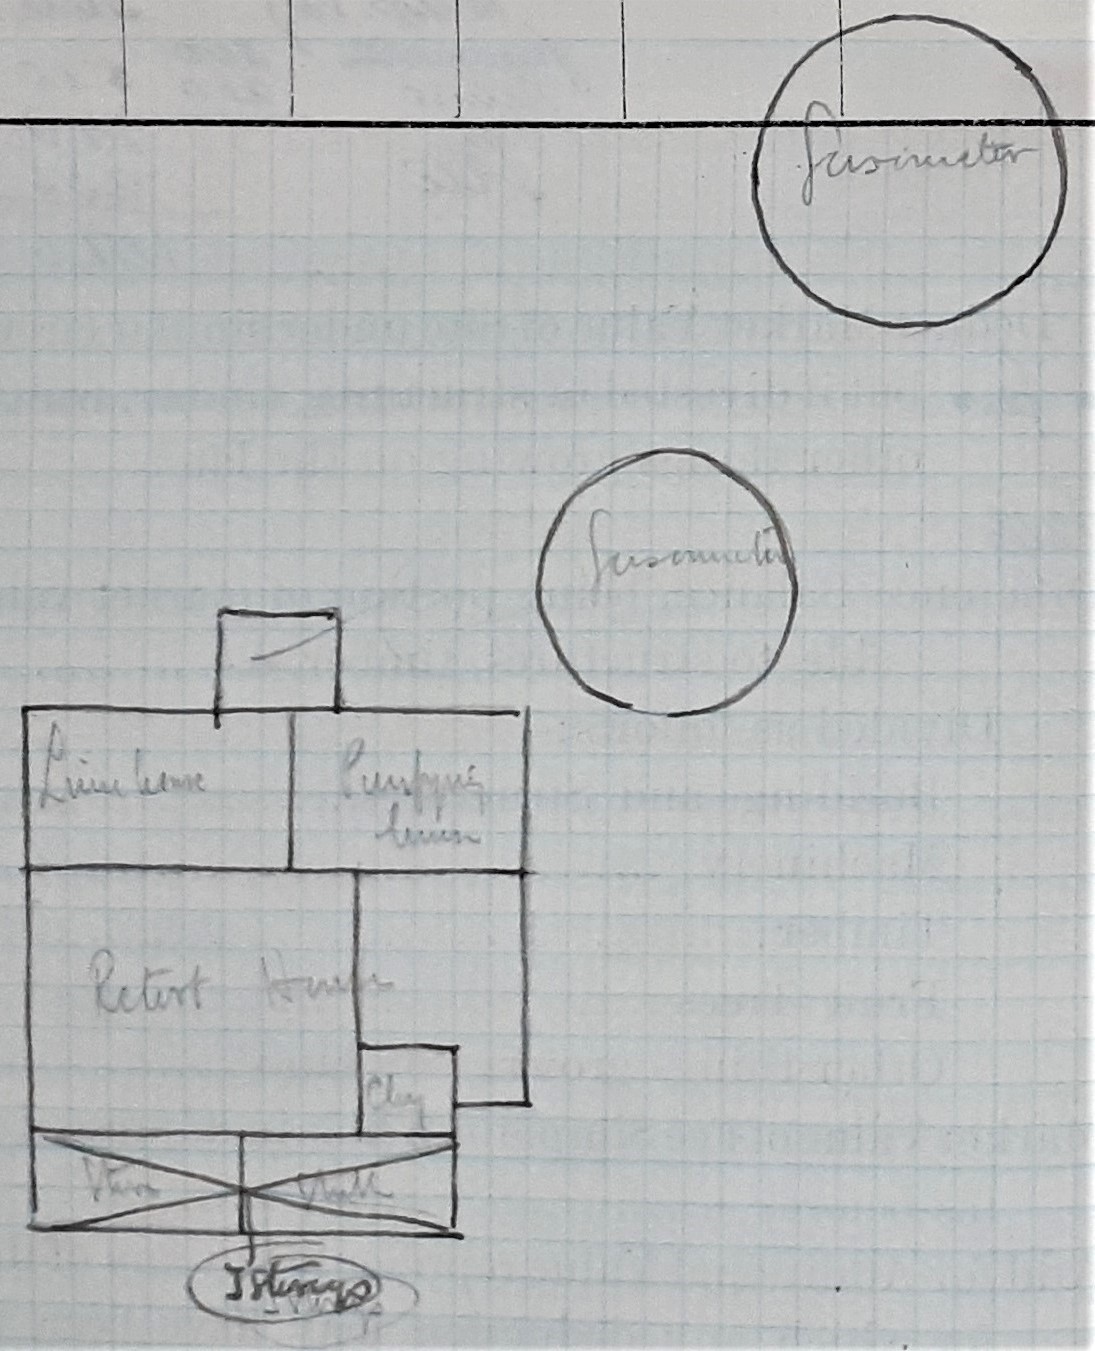 Gasometer
Gasometer
Lime house
Purifying
house
Retort House
Chy
Store